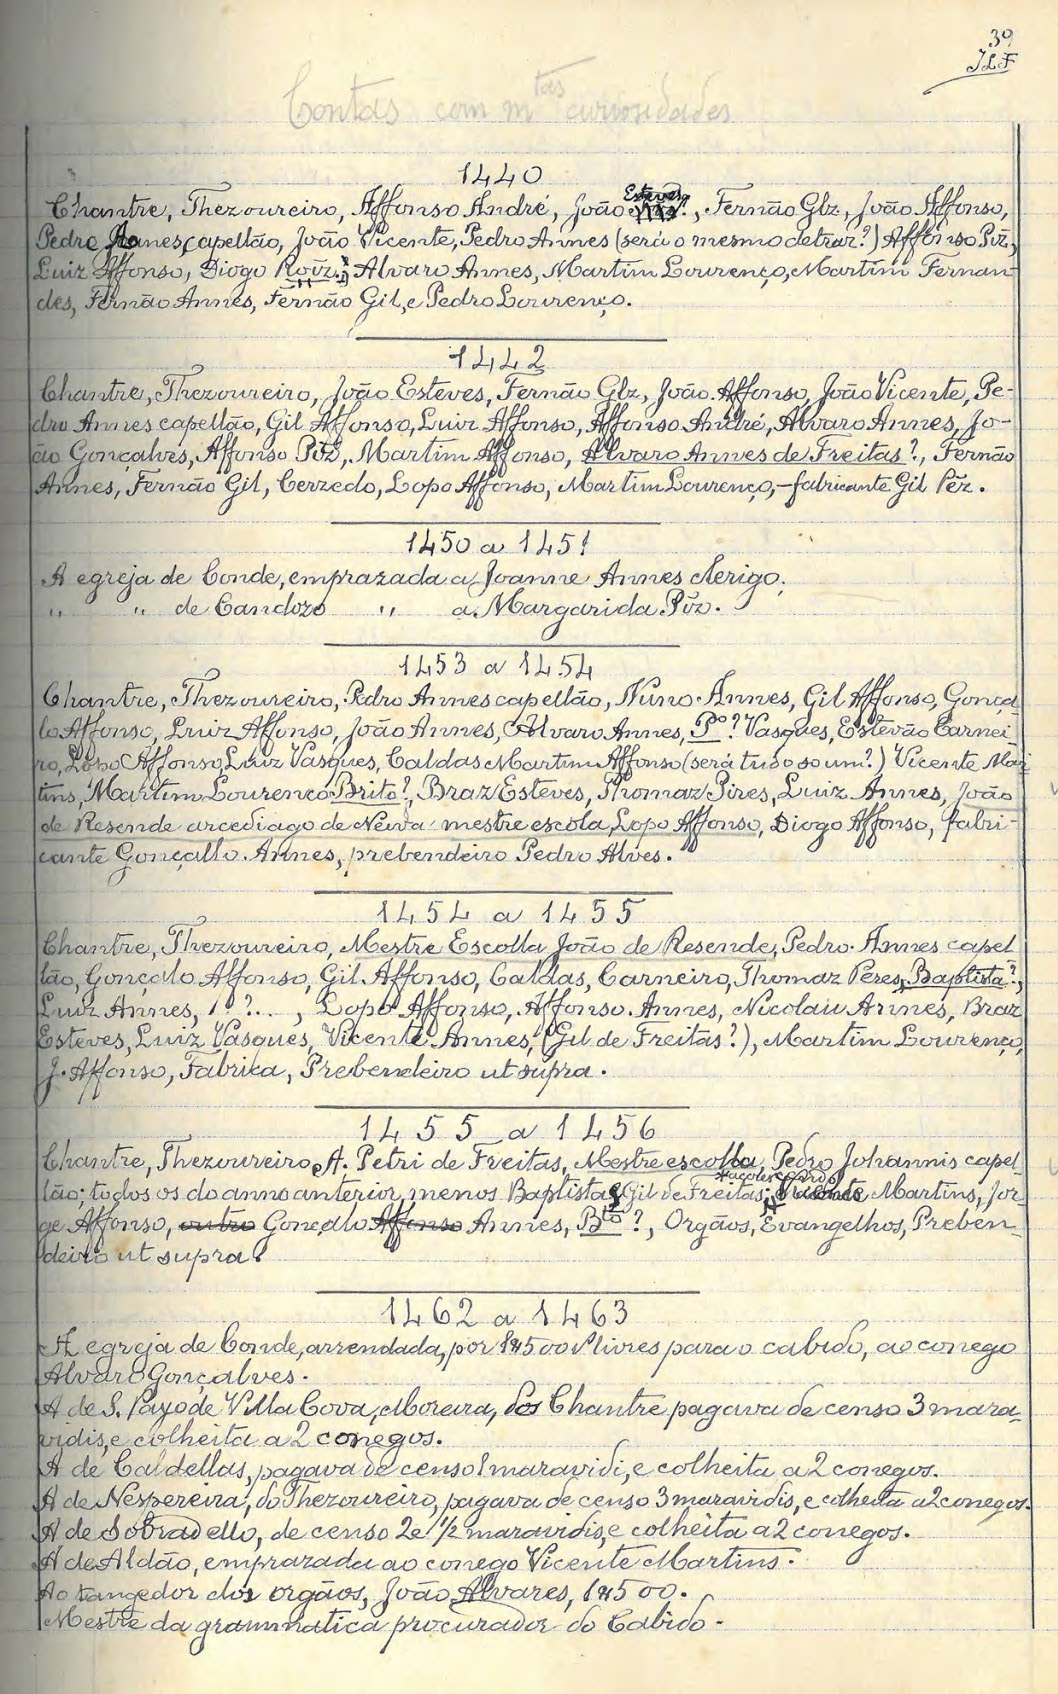 39
JLF
Contas com mtas curiosidades
1440
Chantre, Thezoureiro, Affonso André, João Esteves?, Fernão Glz, João Affonso,
Pedro Annes, capellão, João Vicente, Pedro Annes (será o mesmo de traz?) Affonso Piz,
Luiz Affonso, Diogo Roiz?, Alvaro Annes, Martim Lourenço, Martim Fernan-
des, Fernão Annes, Fernão Gil, e Pedro Lourenço.
1442
Chantre, Thezoureiro, João Esteves, Fernão Glz, João Affonso, João Vicente, Pe-
dro Annes capellão, Gil Affonso, Luiz Affonso, Affonso André, Alvaro Annes, Jo-
ão Gonçalves, Affonso Piz, Martim Affonso, Alvaro Annes de Freitas?, Fernão
Annes, Fernão Gil, Cerzedo, Lopo Affonso, Martim Lourenço, - fabricante Gil Pez.
1450 a 1451
A egreja de Conde, emprazada a Joanne Annes clerigo.
" " de Candozo " a Margarida Piz.
1453 a 1454
Chantre, Thezoureiro, Pedro Annes capellão, Nuno Annes, Gil Affonso, Gonça-
lo Affonso, Luiz Affonso, João Annes, Alvaro Annes, Po? Vasques, Estevão Carnei-
ro, Lopo Affonso, Luiz Vasques, Caldas Martim Affonso (será tudo so um?) Vicente Mar-
tins, Martim Lourenço Brito?, Braz Esteves, Thomaz Pires, Luiz Annes, João
de Resende arcediago de Neiva mestre escola, Lopo Affonso, Diogo Affonso, fabri-
cante Gonçallo Annes, prebendeiro Pedro Alves.
1454 a 1455
Chantre, Thezoureiro, Mestre Escolla João de Resende, Pedro Annes capel-
lão, Gonçalo Affonso, Gil Affonso, Caldas, Carneiro, Thomaz Peres, Baptista?,
Luiz Annes, ?..., Lopo Affonso, Affonso Annes, Nicolau Annes, Braz
Esteves, Luiz Vasques, Vicente Annes, (Gil de Freitas?), Martim Lourenço,
J. Affonso, Fabrica, Prebendeiro ut supra.
1455 a 1456
Chantre, Thezoureiro, A. Petri de Freitas, Mestre escolla, Pedro Johannis capel-
lão; todos os do anno anterior menos Baptista e Gil de Freitas; Martins, Jor-
ge Affonso, outro Gonçalo Affonso Annes, Bto?, Orgãos, Evangelhos, Preben-
deiro ut supra.
1462 a 1463
A egreja de Conde, arrendada, por 1$500 rs livres para o cabido, ao conego
Alvaro Gonçalves.
A de S. Payo de Villa Cova, Moreira, do Chantre pagava de censo 3 mara-
vidis, e colheita a 2 conegos.
A de Caldellas, pagava de censo 1 maravidi, e colheita a 2 conegos.
A de Nespereira, do Thezoureiro, pagava de censo 3 maravidis, e colheita a 2 conegos.
A de Sobradello, de censo 2 e 1/2 maravidis, e colheita a 2 conegos.
A de Aldão, emprazada ao conego Vicente Martins.
Ao tangedor dos orgãos, João Alvares, 1$500.
Mestre da grammatica procurador do Cabido.